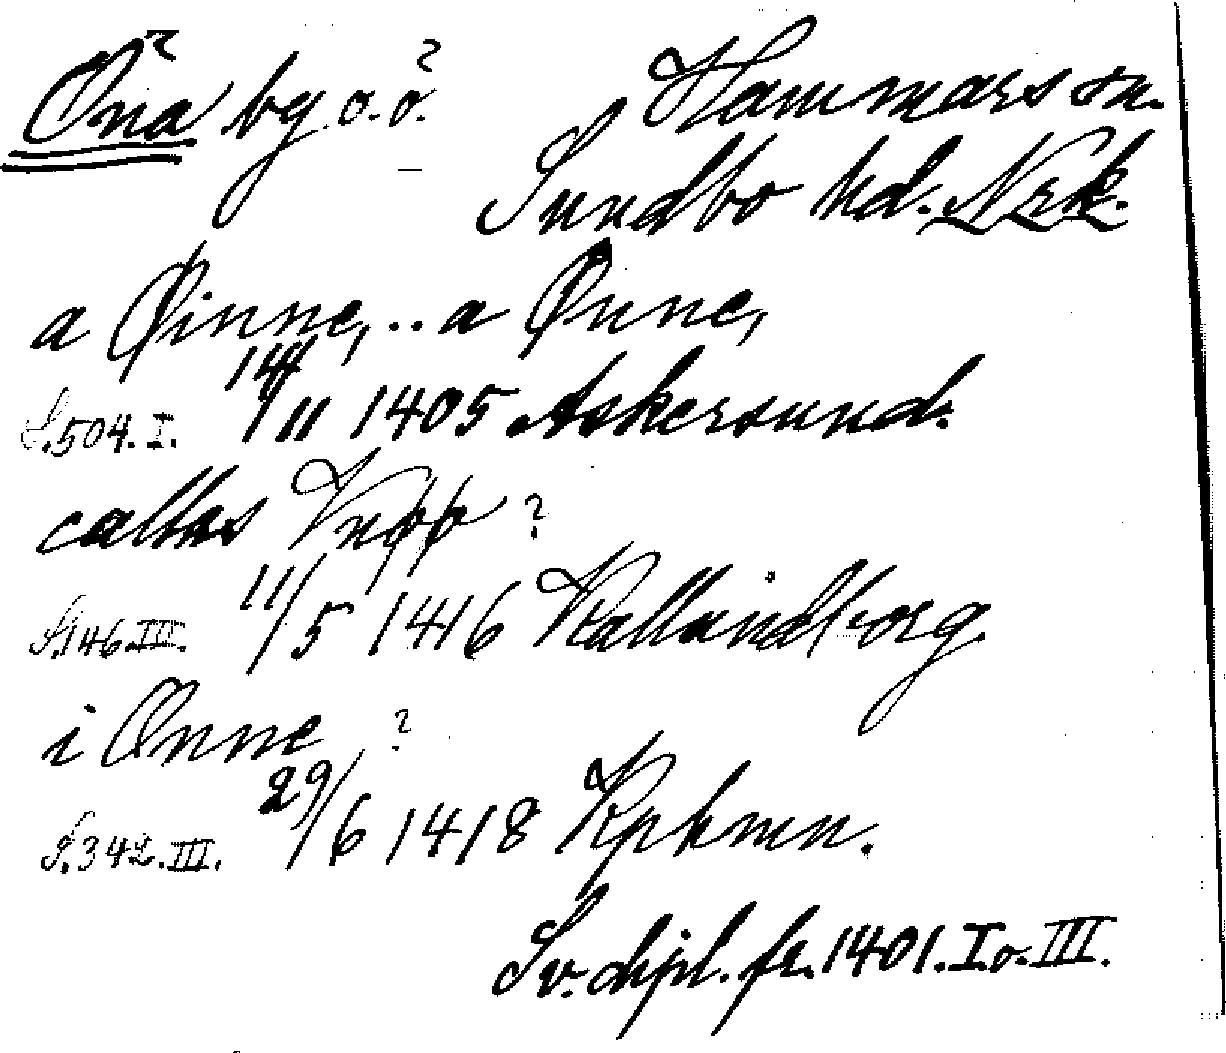 Öna by o. ö. ? Hammars sn.
Sundbo hd. Nrk.
a Øinne, .. a Ønne,
S. 504. I. 14/11 1405 Askersund.
callas Knopp ?
S. 146. III. 11/5 1416 Kallundborg.
i Ønne ?
S. 342. III. 29/6 1418 Kphmn.
Sv. dipl. fr. 1401. I o. III.